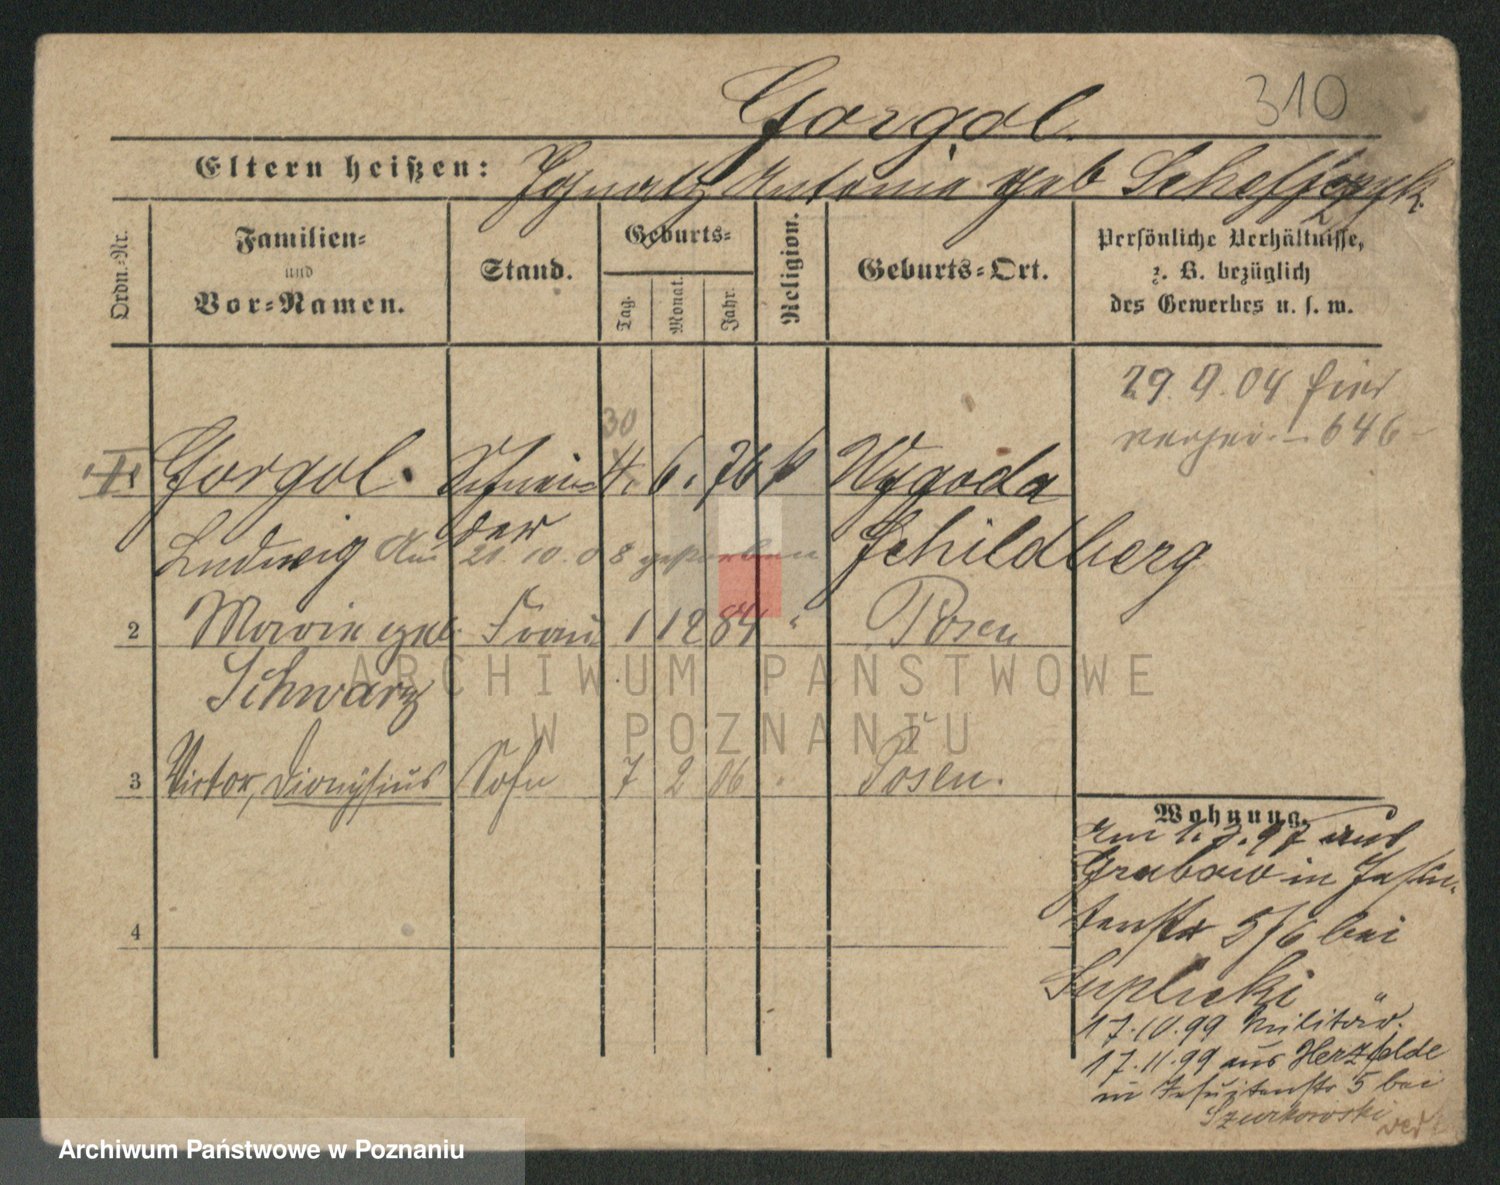 Gorgol.
310
Eltern heißen: Ignatz Antonie geb
Ordn.-Nr.
Familien-
und
Vor-Namen.
Stand.
Geburts-
Tag.
Monat.
Jahr.
Religion.
Geburts-Ort.
Persönliche Verhältnisse,
z. B. bezüglich
des Gewerbes u. s. w.
29. 9. 04 hier
verhei. – 646 –
30
Gorgol. Schnei- 4. 6. 76 k Wygoda
der
Ludwig Am 21. 10. 08 gestorben Schildberg
2 Marie geb. Frau 1 12 84 " Posen
Schwarz
3 Victor, Dionysius Sohn 7 2 06 " Posen.
4
Wohnung.
Am 1. 7. 97 aus
Grabow in Jesui-
tenstr 5/6 bei
Suplicki
17.10.99 Militär.
17.11.99 aus Herzfelde
in Jesuitenstr 5 bei
Szurkowski
ARCHIWUM PAŃSTWOWE
W POZNANIU
Archiwum Państwowe w Poznaniu